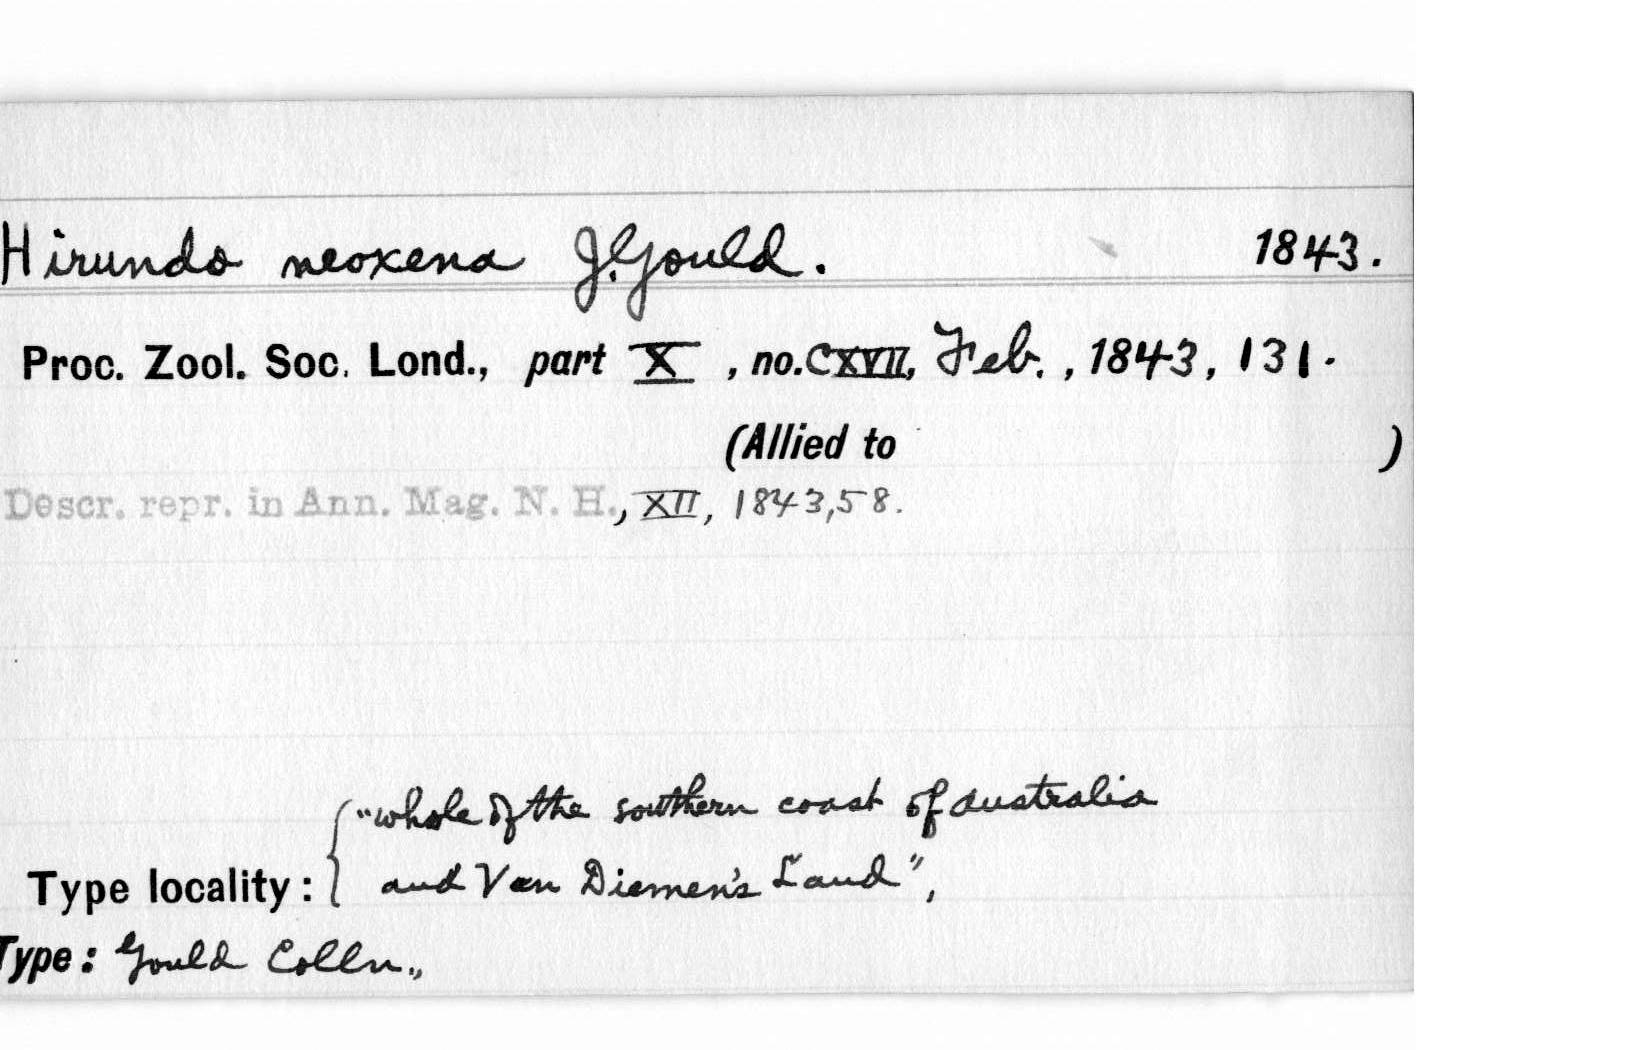 Hirundo neoxena J. Gould. 1843.
Proc. Zool. Soc. Lond., part X, no. CXVII, Feb., 1843, 131.
(Allied to )
Descr. repr. in Ann. Mag. N. H., XII, 1843, 58.
"whole of the southern coast of Australia
Type locality: { and Van Diemen's Land",
Type: Gould Colln.,